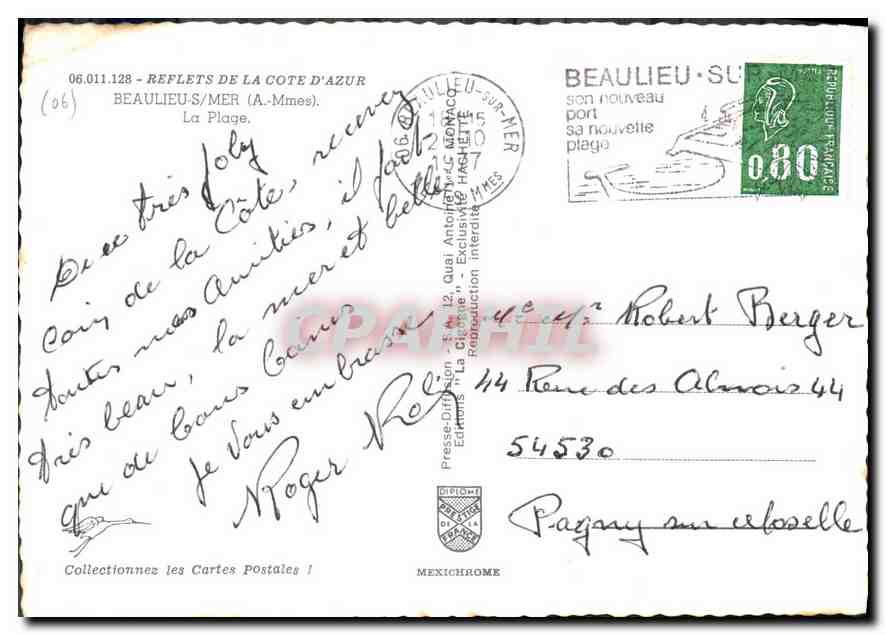 06.011.128 - REFLETS DE LA COTE D'AZUR
BEAULIEU-S/MER (A.-Mmes).
La Plage.
(06)
très Joly
Coin de la Côte, recevez
toutes nos Amitiés, il fait
très beau, la mer et belle
que de bons bains
je vous embrasse
Roger
Collectionnez les Cartes Postales !
Presse-Diffusion - S.A. 12, Quai Antoine 1er - MONACO
Editions "La Cigogne" - Exclusivité HACHETTE
Reproduction interdite
DIPLOME
PRESTIGE
DE LA
FRANCE
MEXICHROME
06 BEAULIEU-SUR-MER
18 H 15
BEAULIEU · SU
son nouveau
port
sa nouvelle
plage
REPUBLIQUE FRANÇAISE
0,80
Me Mr Robert Berger
44 Rue des Aulnois 44
54530
Pagny sur Moselle
CPAPHIL